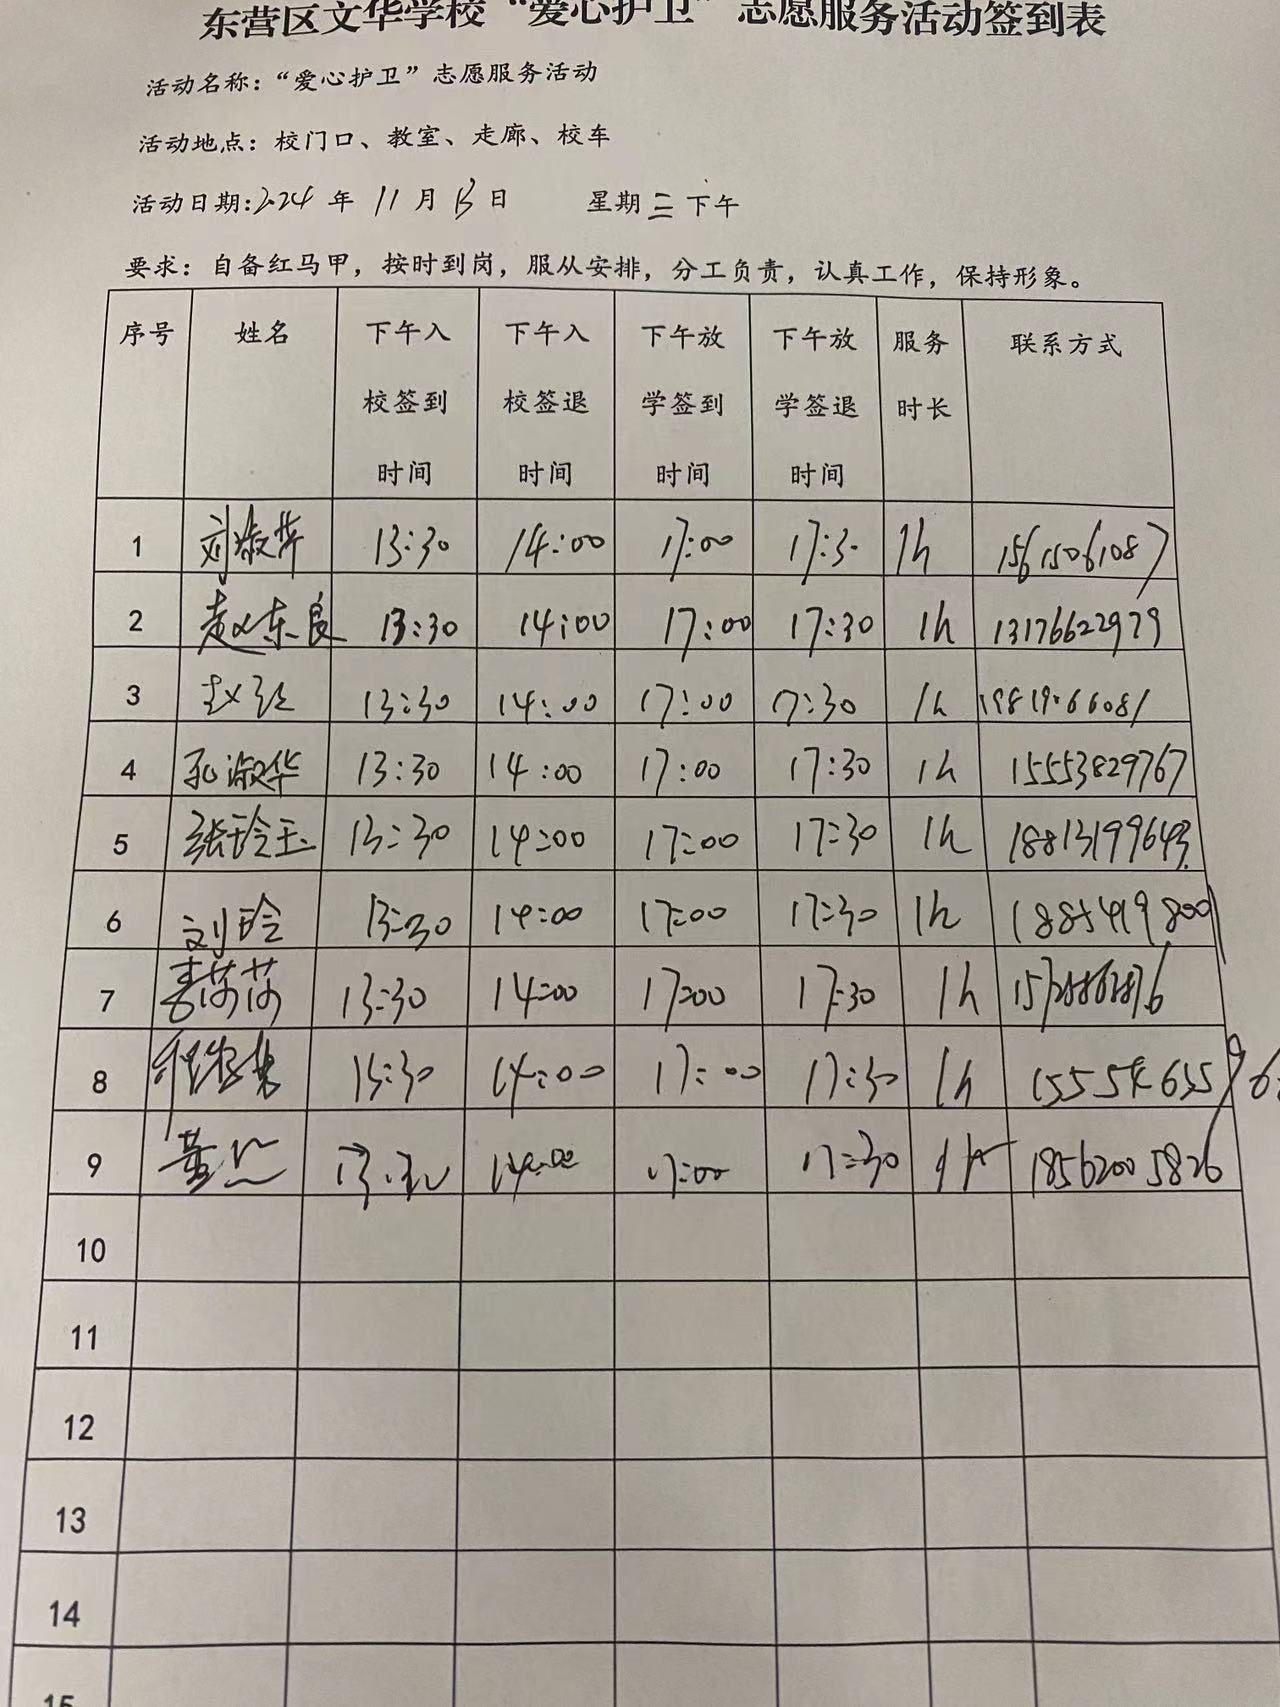 东营区文华学校“爱心护卫”志愿服务活动签到表
活动名称：“爱心护卫”志愿服务活动
活动地点：校门口、教室、走廊、校车
活动日期:2024 年 11 月 13 日 星期 三 下午
要求：自备红马甲，按时到岗，服从安排，分工负责，认真工作，保持形象。
序号 姓名 下午入校签到时间 下午入校签退时间 下午放学签到时间 下午放学签退时间 服务时长 联系方式
1 刘淑萍 13:30 14:00 17:00 17:30 1h 15615061087
2 赵东良 13:30 14:00 17:00 17:30 1h 13176622979
3 赵 13:30 14:00 17:00 17:30 1h
4 孔淑华 13:30 14:00 17:00 17:30 1h 15553829767
5 张玲玉 13:30 14:00 17:00 17:30 1h 18813199643
6 刘玲 13:30 14:00 17:00 17:30 1h 18854198001
7 莎莎 13:30 14:00 17:00 17:30 1h
8 13:30 14:00 17:00 17:30 1h
9 董 13:30 14:00 17:00 17:30 1h 18562005826
10
11
12
13
14
15